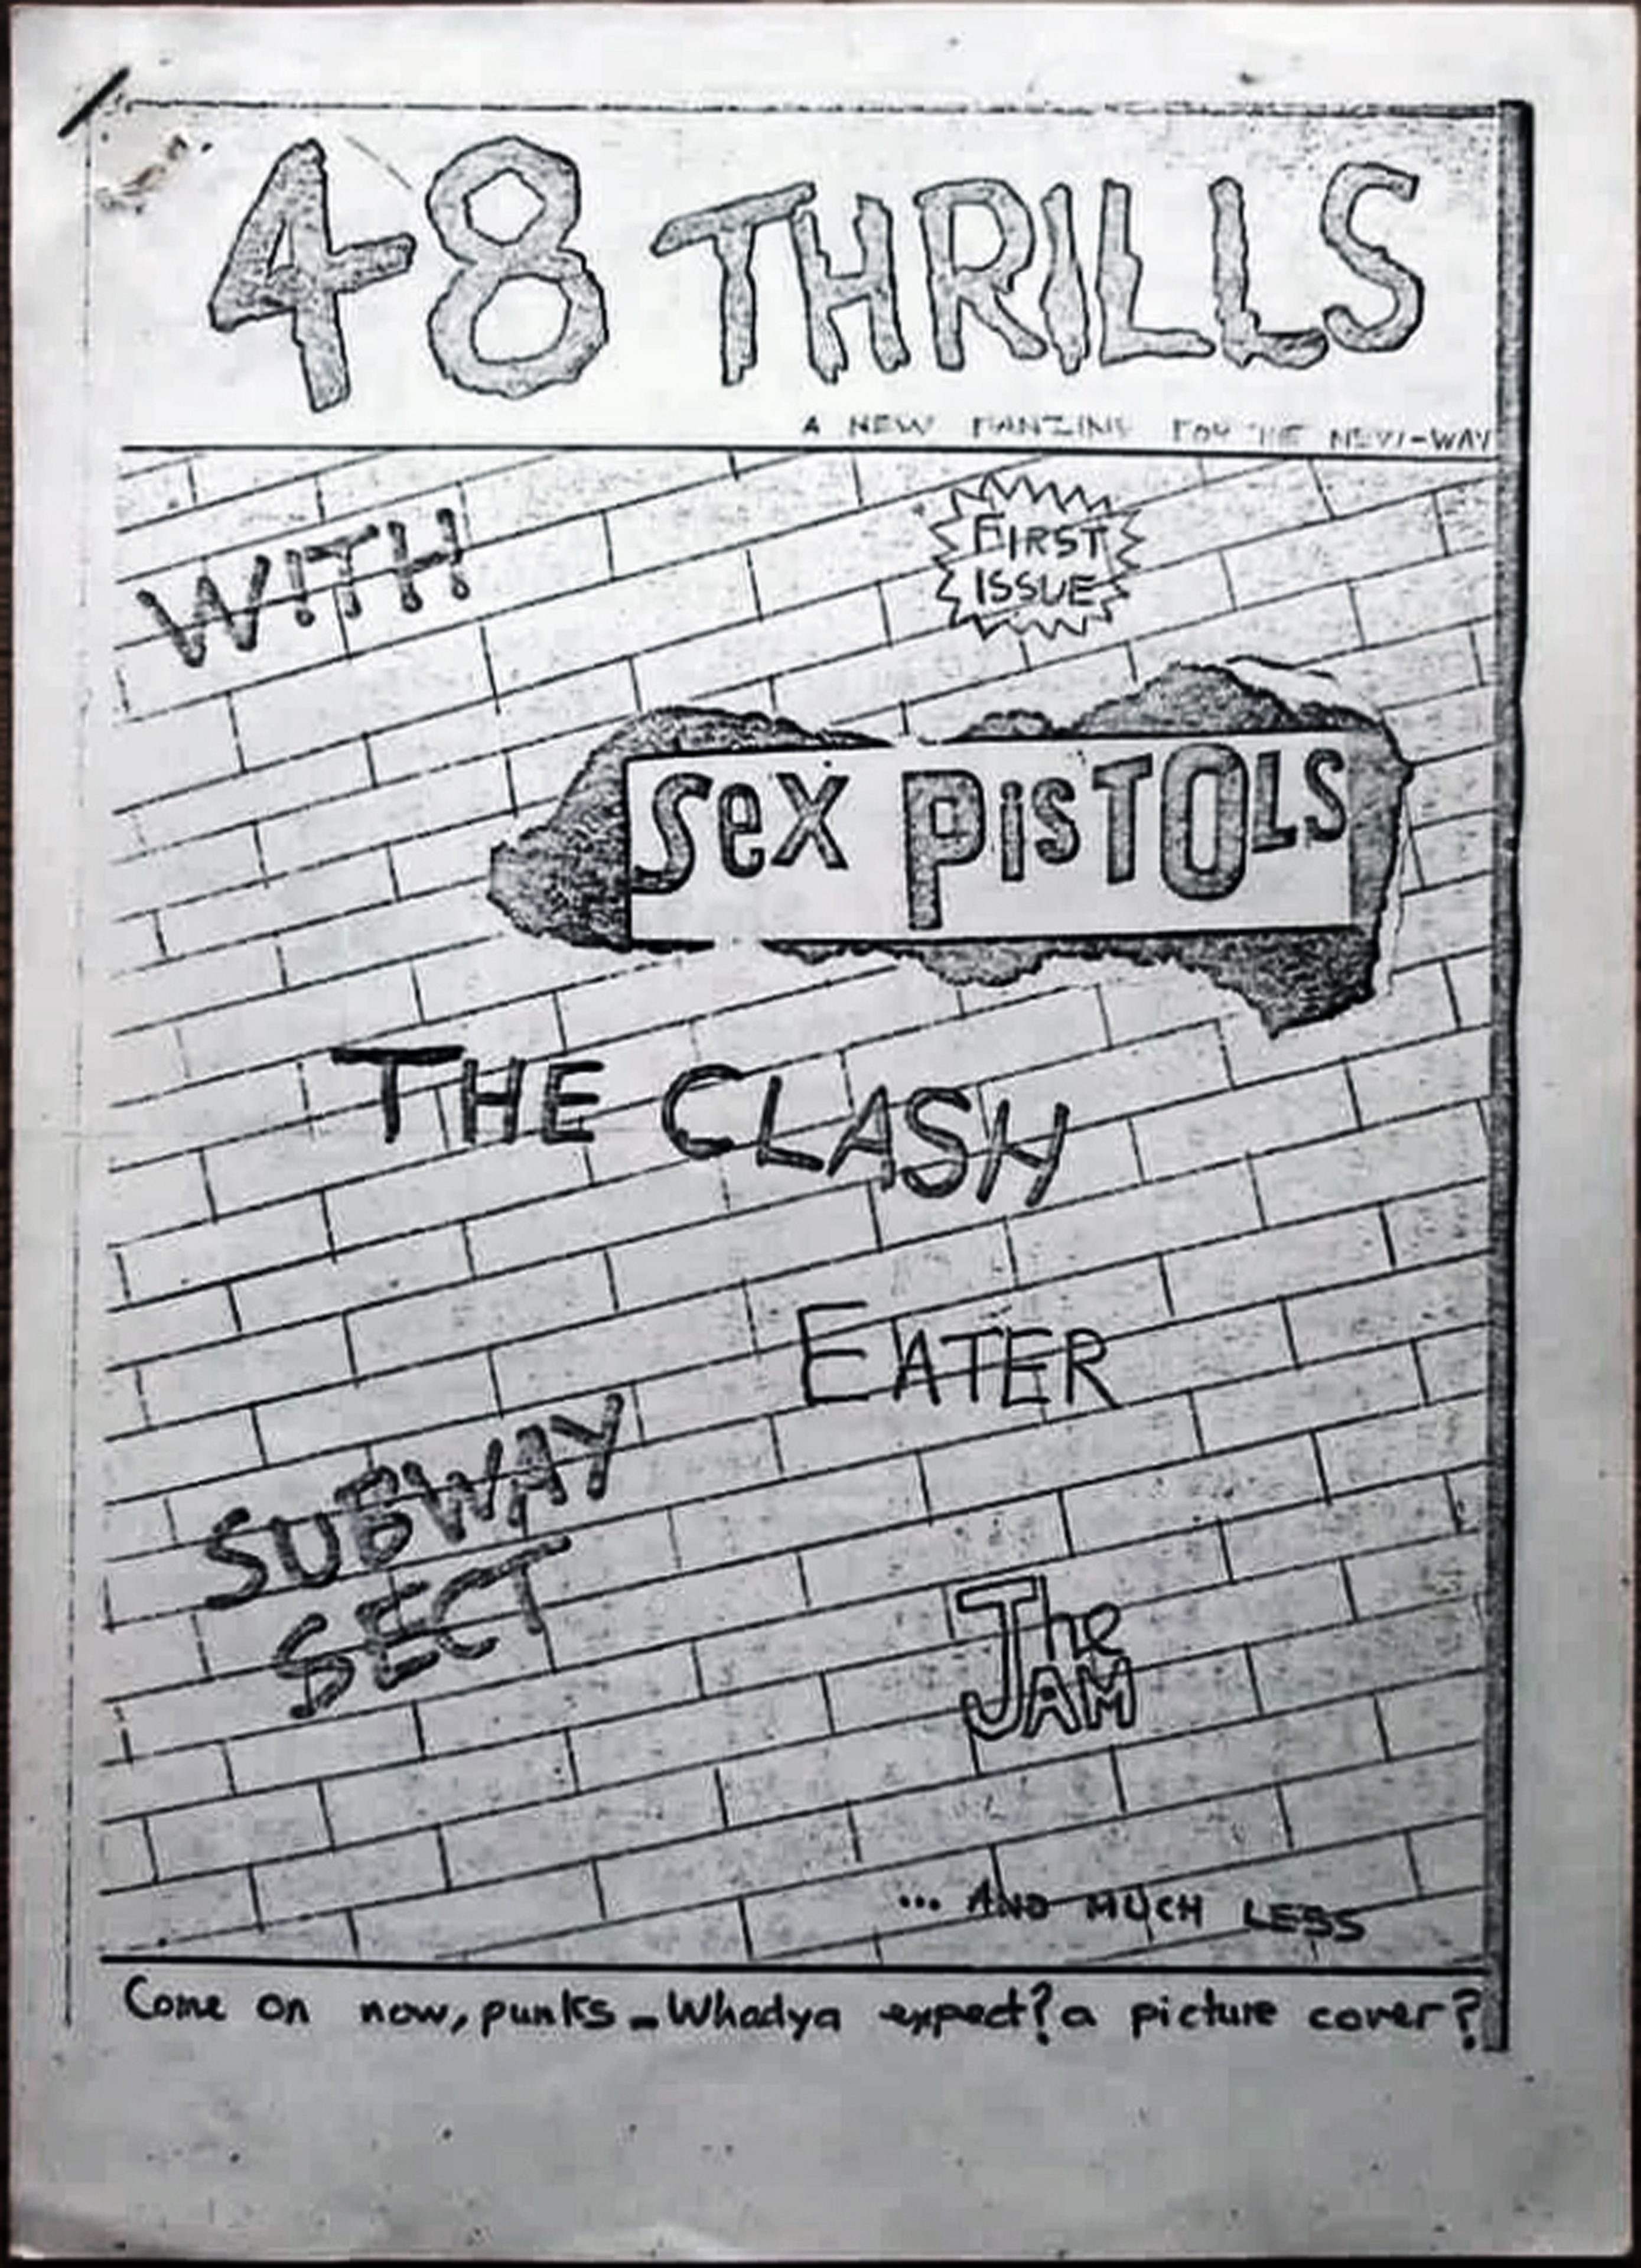 48 THRILLS
A NEW FANZINE FOR THE NEW-WAV
WITH
FIRST
ISSUE
SeX PiSTOLS
THE CLASH
EATER
SUBWAY
SECT
The
JAM
... AND MUCH LESS
Come on now, punks - Whadya expect? a picture cover?